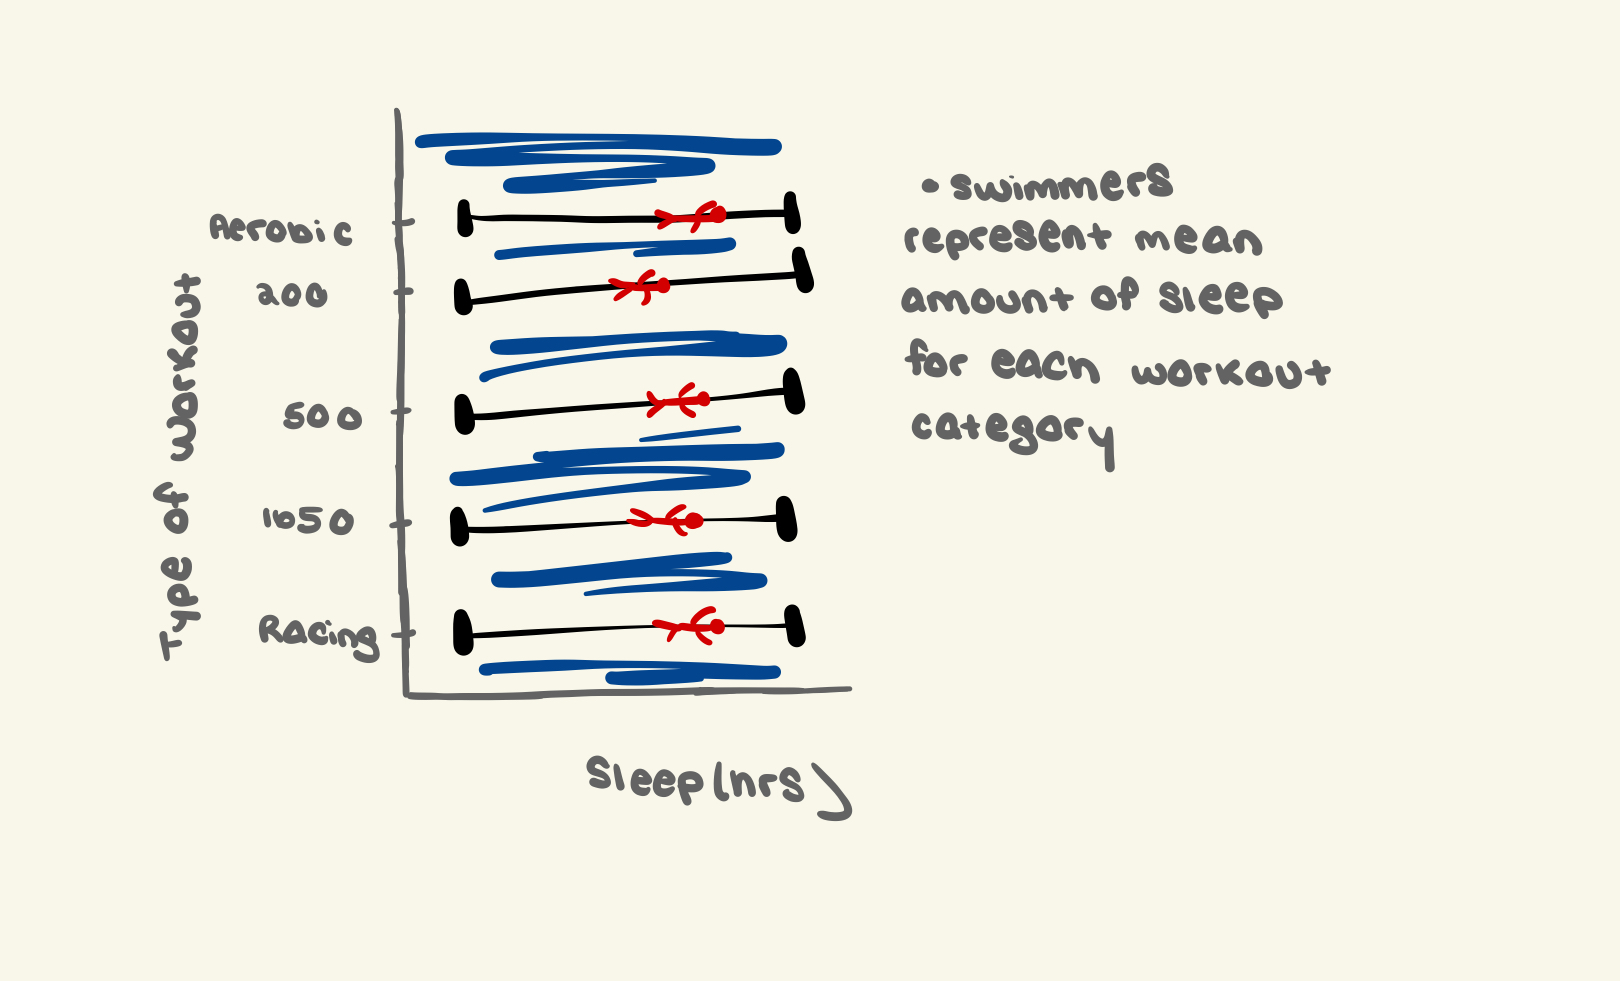 Type of workout
Aerobic
200
500
1650
Racing
Sleep(hrs)
• swimmers
represent mean
amount of sleep
for each workout
category